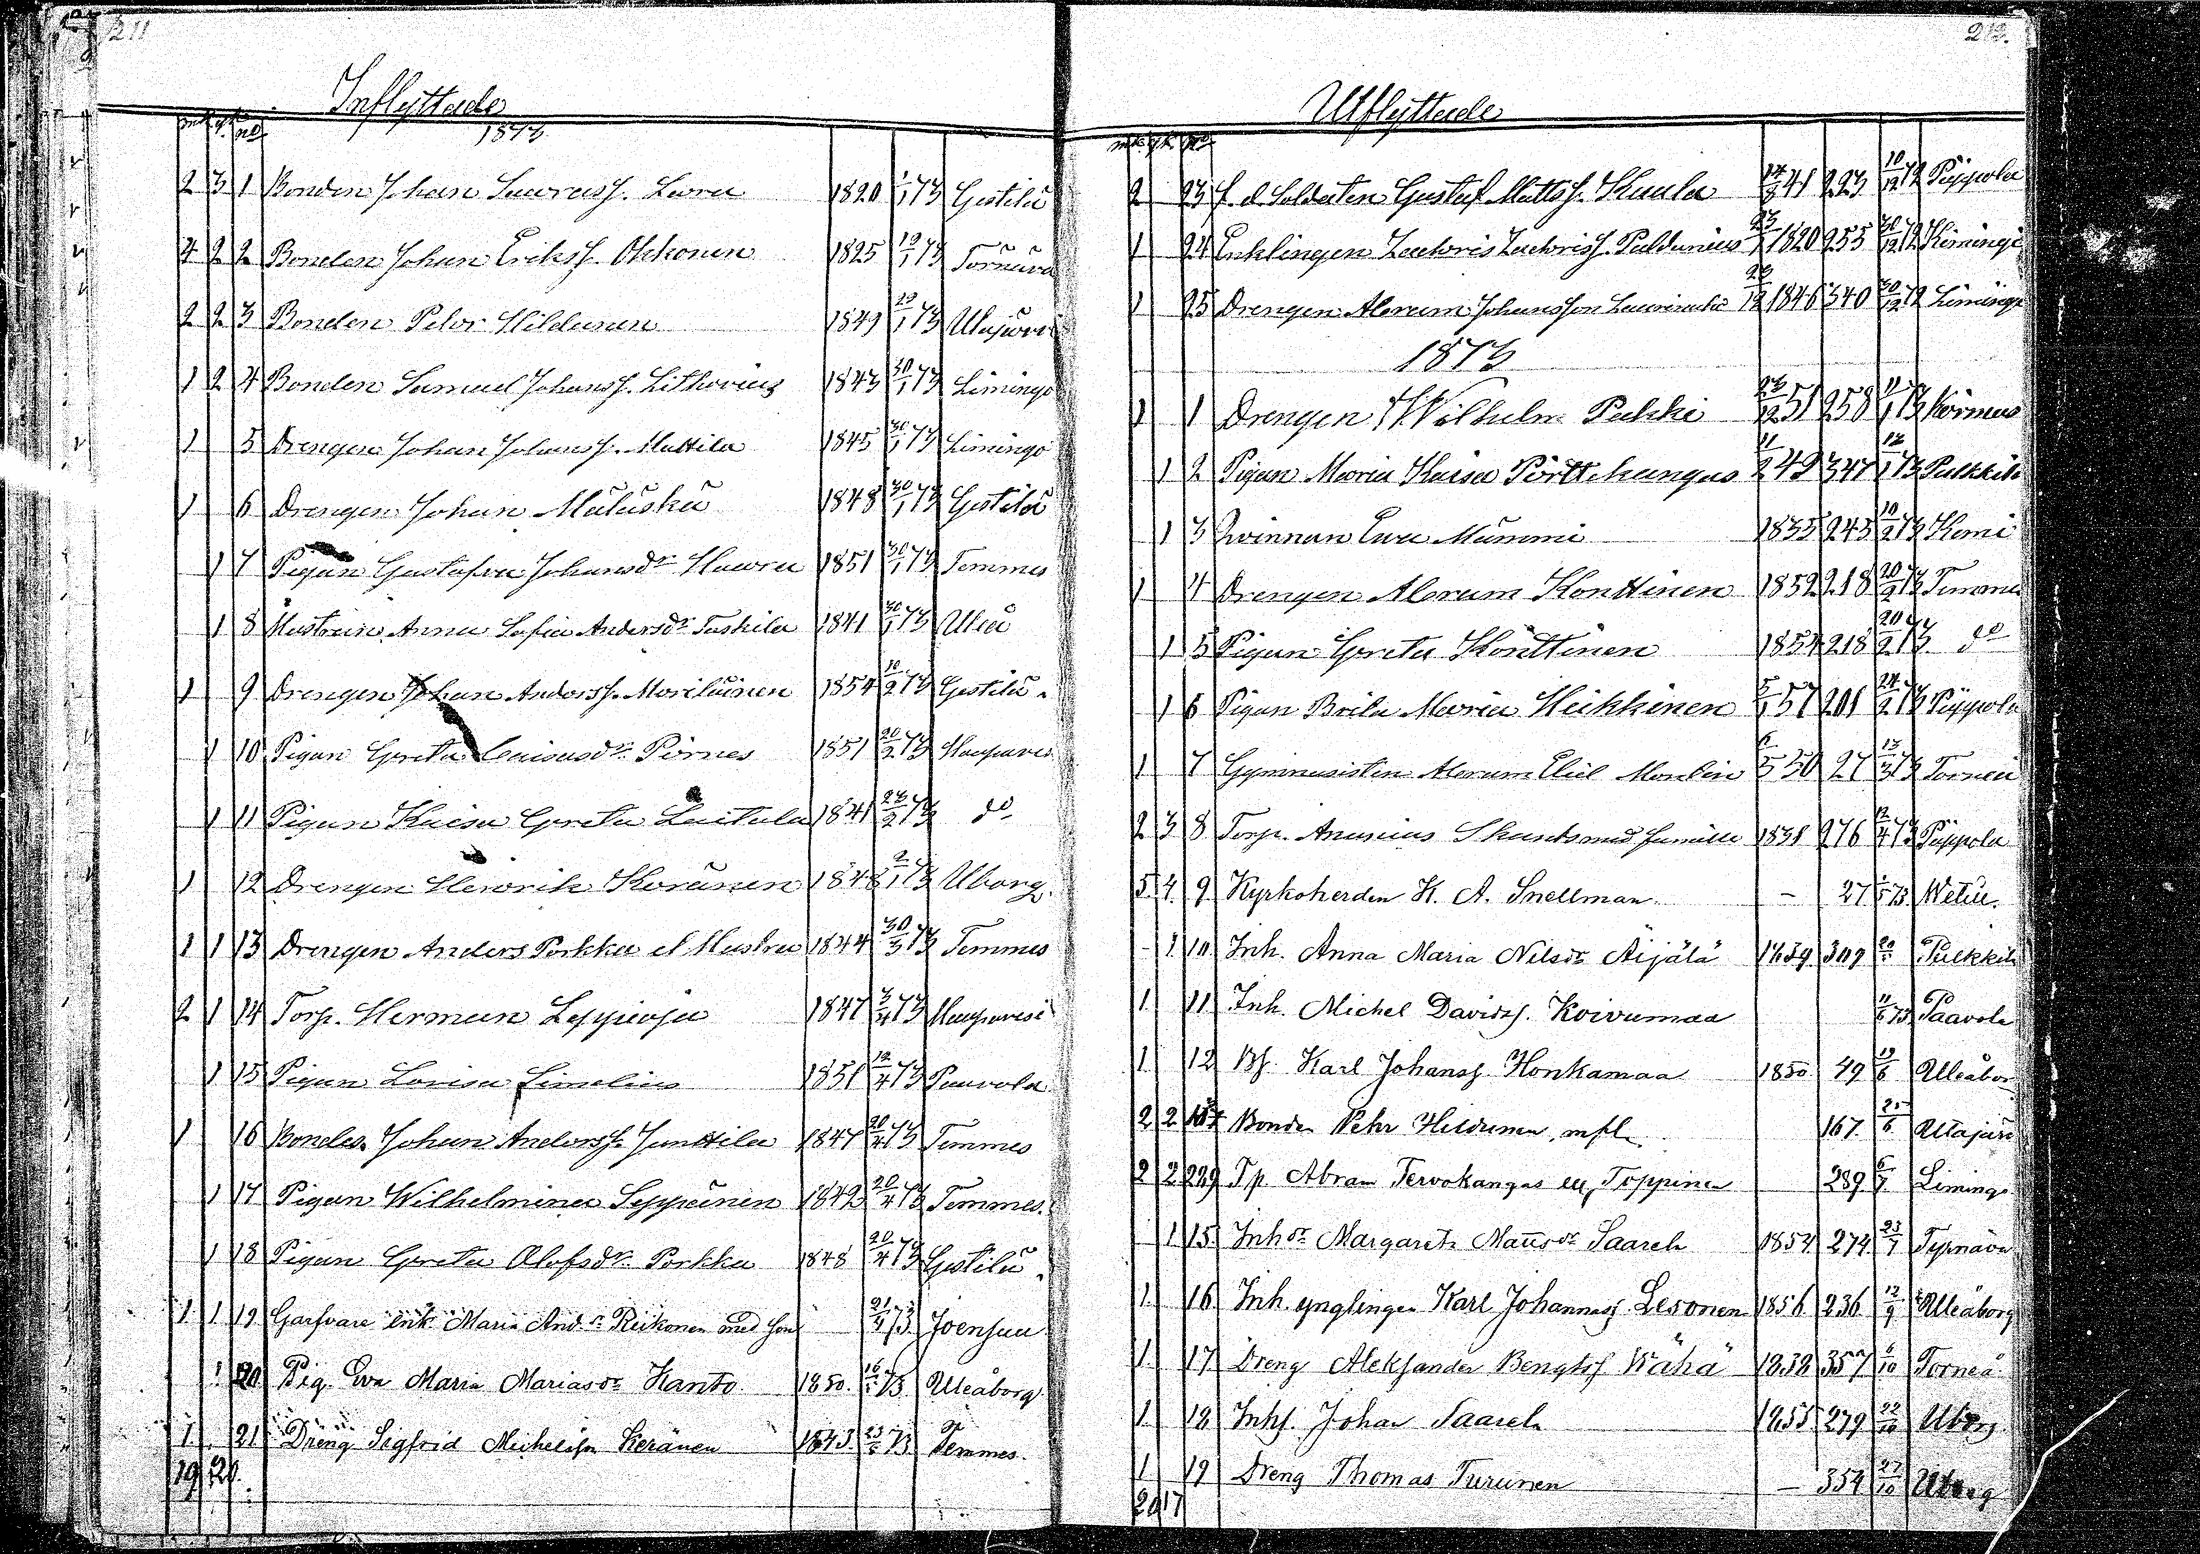 211
Inflyttade
mk qk no
1873
2 3 1 Bonden Johan Lauress. Lara 1820 1/1 73 Gestilä
4 2 2 Bonden Johan Erikss. Okkonen 1825 19/1 73 Törnävä
2 2 3 Bonden Petor Hildunen 1849 29/1 73 Utajärvi
1 2 4 Bonden Samuel Johanss. Lithovius 1843 30/1 73 Limingo
1 5 Drengen Johan Johanss. Mattila 1845 30/1 73 Limingo
1 6 Drengen Johan Mäläskä 1848 30/1 73 Gestilä
1 7 Pigan Gustafva Johansdr Hawra 1851 30/1 73 Temmes
1 8 Hustrun Anna Sofia Andersdr Taskila 1841 30/1 73 Uleå
1 9 Drengen Johan Anderss. Moriläinen 1854 10/2 73 Gestilä.
1 10 Pigan Greta Caisasdr Pirnes 1851 20/2 73 Haapaves
1 11 Pigan Kaisa Greta Laitala 1841 23/2 73 do
1 12 Drengen Henrik Keränen 1848 2/1 73 Uborg.
1 1 13 Drengen Anders Porkka et Hustru 1844 30/3 73 Temmes
2 1 14 Torp. Herman Leppioja 1847 3/4 73 Haapavesi
1 15 Pigan Lovisa Simelius 1851 12/4 73 Paavola
1 16 Bondes. Johan Anderss. Junttila 1847 20/4 73 Temmes
1 17 Pigan Wilhelmina Seppänen 1842 20/4 73 Temmes.
1 18 Pigan Greta Olofsdr Porkka 1848 20/4 73 Gestilä.
1 1 19 Garfvare enk. Maria Andr Reikonen med son 21/4 73 Joensuu
1 20 Pig. Eva Maria Mariasdr Kanto 1850. 16/5 73 Uleåborg
1 21 Dreng Sigfrid Michelsson Keränen 1843. 23/5 73 Temmes.
19 20.
212.
Utflyttade
mk. qk. no
2 23 f. d. Soldaten Gustaf Mattss. Kaula 14/8 41 223 10/12 72 Pippola
1 24 Enklingen Zachris Zachriss. Paldanius 23/1 1820 255 30/12 72 Kiminge
1 25 Drengen Abram Johansson Laurinaho 23/12 1846 340 30/12 72 Limingo
1873
1 1 Drengen Wilhelm Pukki 23/12 51 258 11/1 73 Kärmus
1 2 Pigan Maria Kaisa Pörttekangas 11/2 49 347 12/1 73 Pulkkila
1 3 Qvinnan Ewa Mämmi 1835 243 10/2 73 Kemi
1 4 Drengen Abram Konttinen 1852 218 20/2 73 Temmes
1 5 Pigan Greta Konttinen 1854 218 20/2 73. do
1 6 Pigan Brita Maria Heikkinen 5/1 57 201 24/2 73 Pippola
1 7 Gymnasisten Abram Eliel Montin 6/5 50 27 13/3 73 Torneå
2 3 8 Torp. Ananias Skants med famille 1838 276 12/4 73 Pippola
5 4 9 Kyrkoherden K. A. Snellman. - 27 1/5 73. Wetil.
- 1 10 Inh. Anna Maria Nilsdr Äijälä 1839 309 20/5 Pulkkila
1 11 Inh. Michel Davidss. Koivumaa 11/6 73 Paavola
1 12 Bs. Karl Johanss. Honkamaa 1850 49 19/6 Uleåbor
2 2 Bonden Pehr Hildunen, mfl. 167. 25/6 Utajärv
2 2 Tp Abram Tervokangas ell. Toppinen 289 6/7 Limingo
1 15 Inhdr Margareta Mattsdr Saarela 1854 274 23/7 Typnävä
1 16 Inh. ynglingen Karl Johanness. Lesonen 1856 236 12/9 Uleåborg
1 17 Dreng Aleksander Bengtss. Wähä 1838 357 6/10 Torneå
1 18 Inhs. Johan Saarela 1855 279 22/10 Uborg.
1 19 Dreng Thomas Turunen - 354 27/10 Uborg
20 17